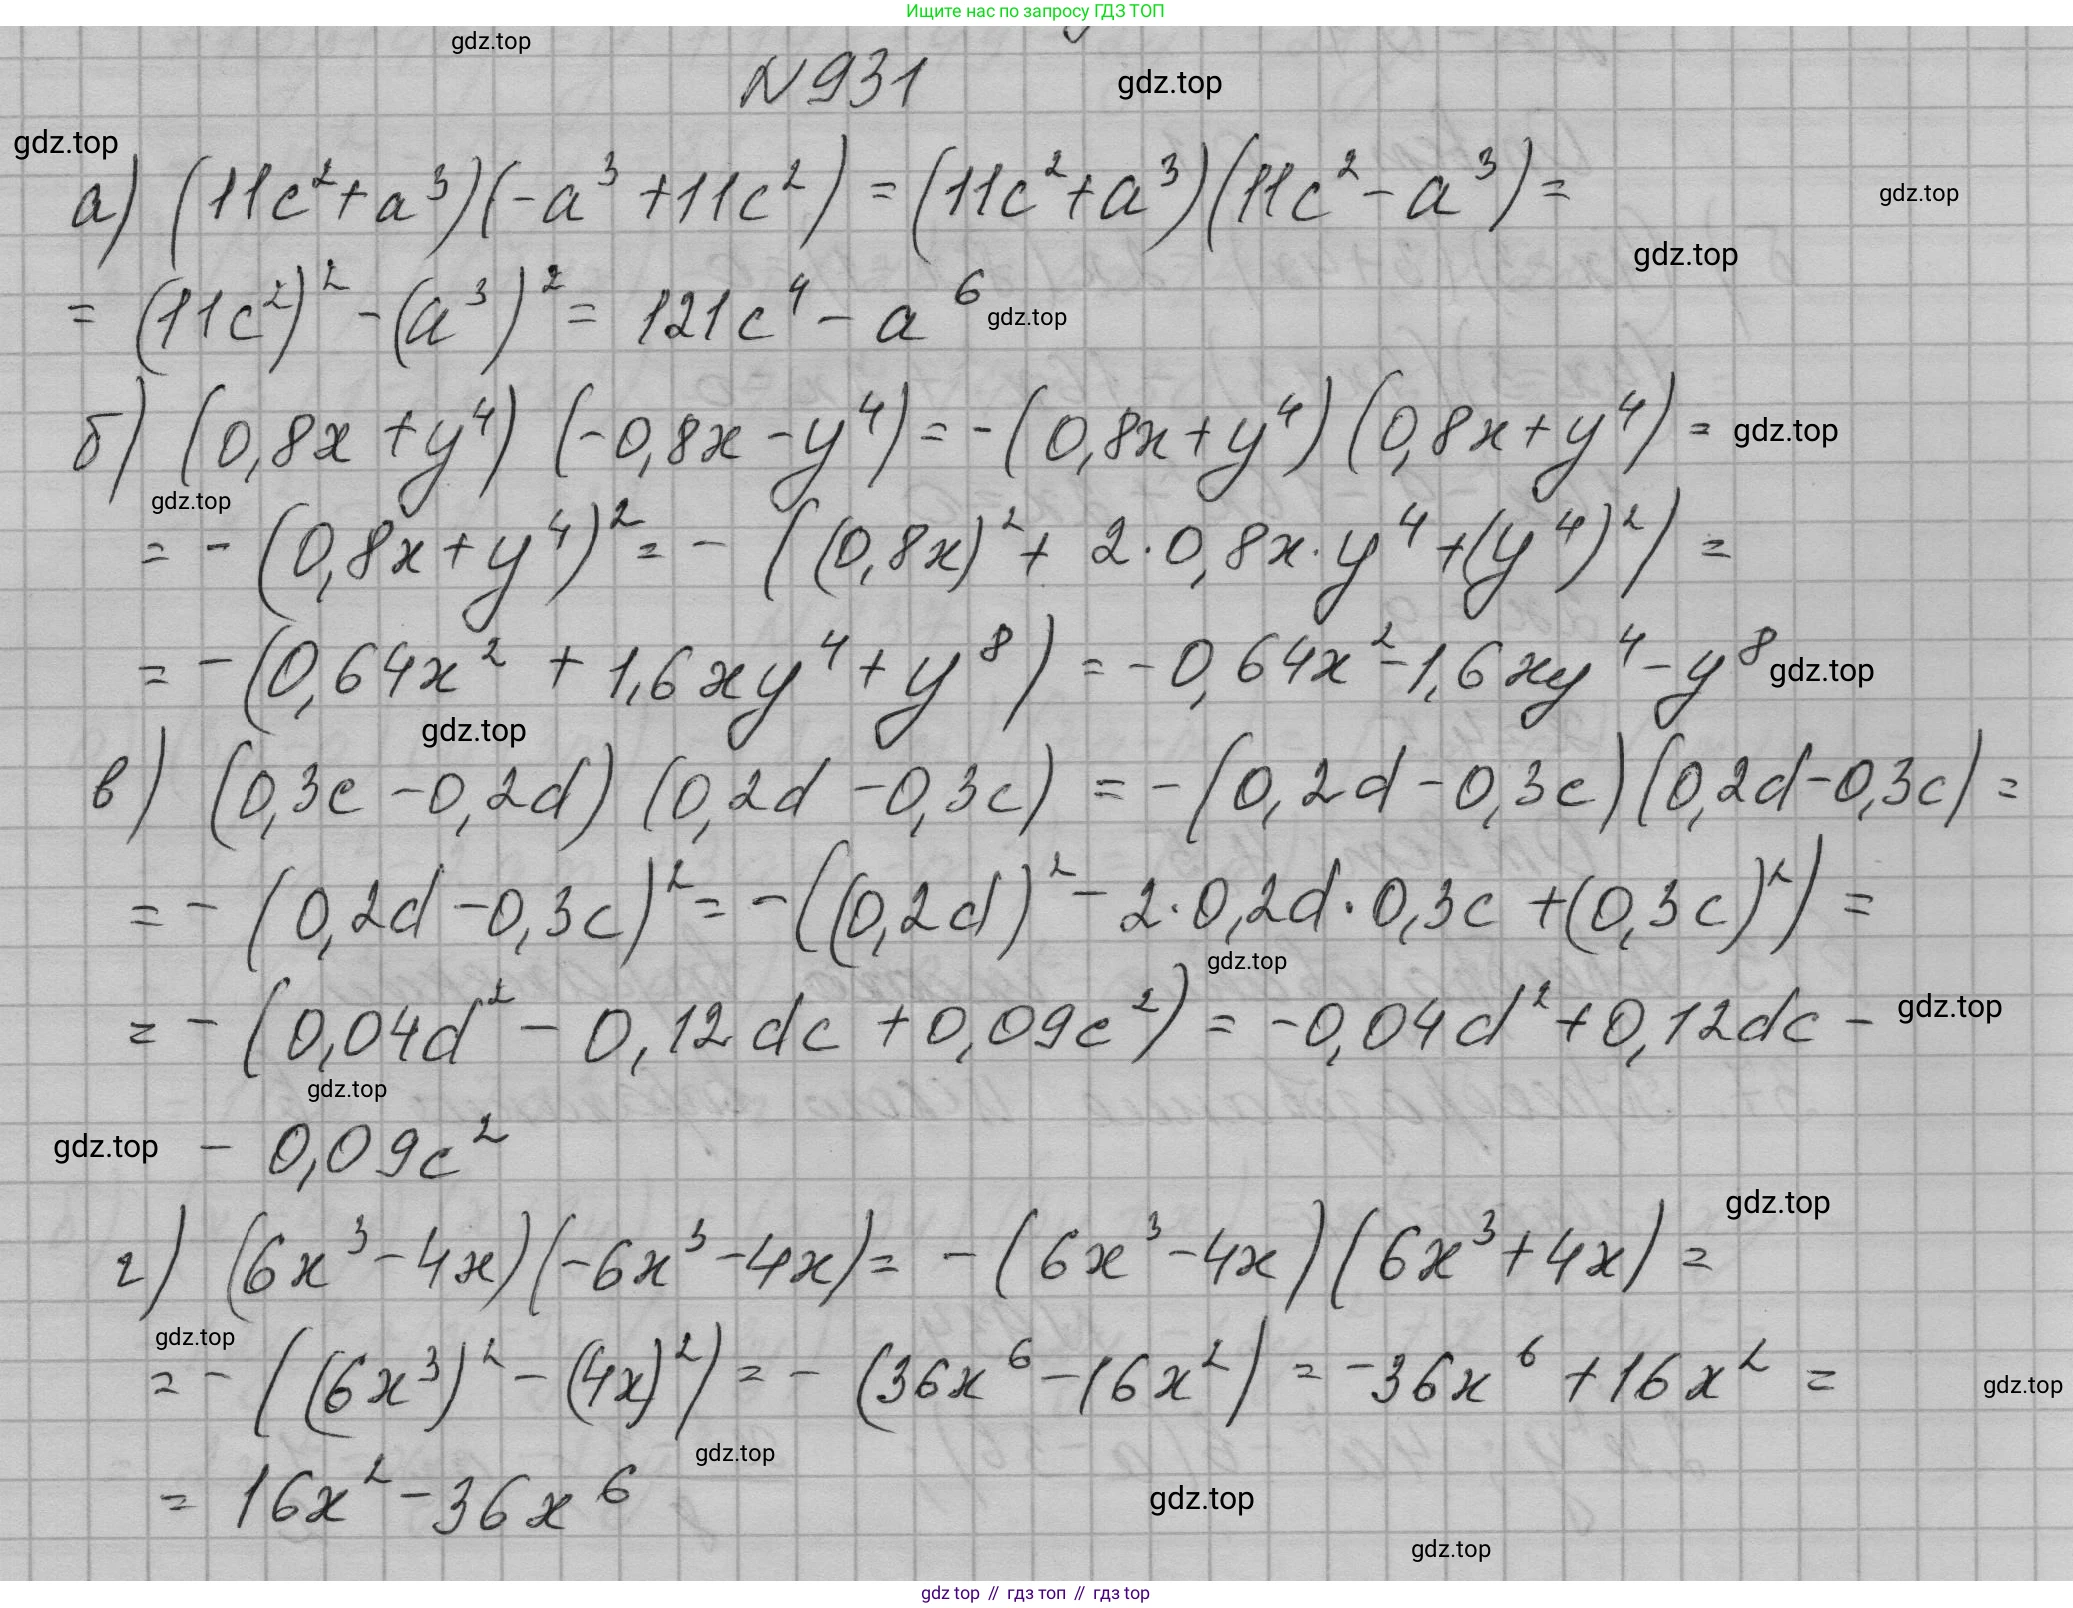 Ищите нас по запросу ГДЗ ТОП
gdz.top
№931
gdz.top
gdz.top
а) (11c²+a³)(-a³+11c²)=(11c²+a³)(11c²-a³)=
gdz.top
gdz.top
=(11c²)²-(a³)²=121c⁴-a⁶
gdz.top
б) (0,8x+y⁴)(-0,8x-y⁴)=-(0,8x+y⁴)(0,8x+y⁴)=
gdz.top
gdz.top
=-(0,8x+y⁴)²=-((0,8x)²+2·0,8x·y⁴+(y⁴)²)=
=-(0,64x²+1,6xy⁴+y⁸)=-0,64x²-1,6xy⁴-y⁸
gdz.top
gdz.top
в) (0,3c-0,2d)(0,2d-0,3c)=-(0,2d-0,3c)(0,2d-0,3c)=
=-(0,2d-0,3c)²=-((0,2d)²-2·0,2d·0,3c+(0,3c)²)=
gdz.top
=-(0,04d²-0,12dc+0,09c²)=-0,04d²+0,12dc-
gdz.top
gdz.top
gdz.top
-0,09c²
gdz.top
г) (6x³-4x)(-6x³-4x)=-(6x³-4x)(6x³+4x)=
gdz.top
=-((6x³)²-(4x)²)=-(36x⁶-16x²)=-36x⁶+16x²=
gdz.top
gdz.top
=16x²-36x⁶
gdz.top
gdz.top
gdz top // гдз топ // гдз top